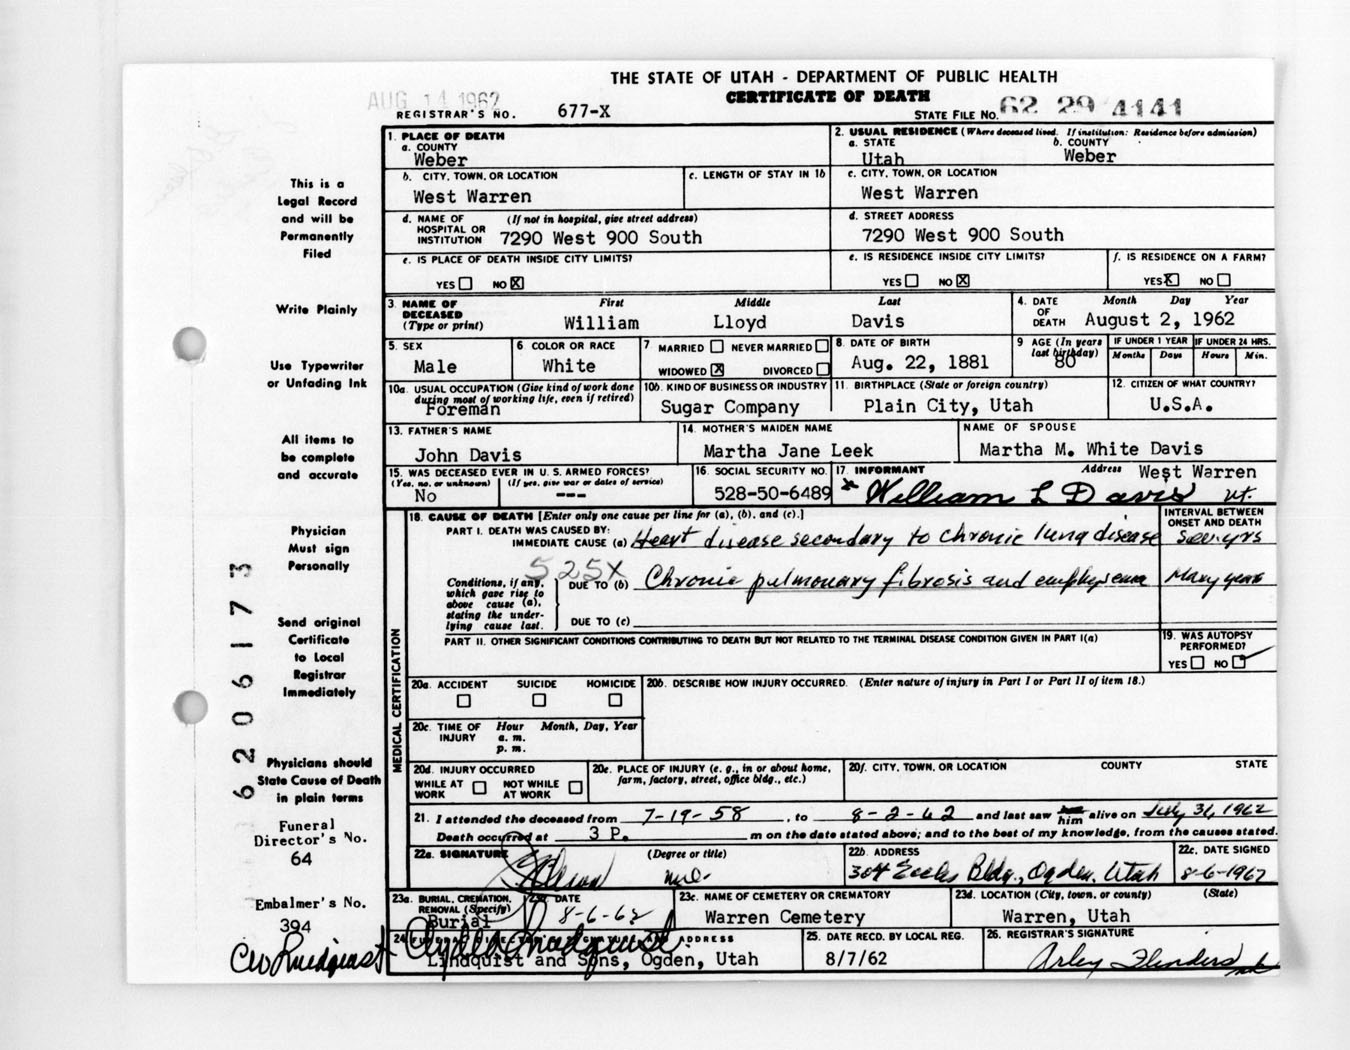 THE STATE OF UTAH - DEPARTMENT OF PUBLIC HEALTH
AUG 14 1962
CERTIFICATE OF DEATH
REGISTRAR'S NO. 677-X STATE FILE NO. 62 29 4141
1. PLACE OF DEATH
a. COUNTY
Weber
2. USUAL RESIDENCE (Where deceased lived. If institution: Residence before admission)
a. STATE b. COUNTY
Utah Weber
b. CITY, TOWN, OR LOCATION
West Warren
c. LENGTH OF STAY IN 1b
c. CITY, TOWN, OR LOCATION
West Warren
d. NAME OF HOSPITAL OR INSTITUTION (If not in hospital, give street address)
7290 West 900 South
d. STREET ADDRESS
7290 West 900 South
e. IS PLACE OF DEATH INSIDE CITY LIMITS?
YES NO X
e. IS RESIDENCE INSIDE CITY LIMITS?
YES NO X
f. IS RESIDENCE ON A FARM?
YES X NO
3. NAME OF DECEASED (Type or print) First Middle Last
William Lloyd Davis
4. DATE OF DEATH Month Day Year
August 2, 1962
5. SEX
Male
6 COLOR OR RACE
White
7 MARRIED NEVER MARRIED
WIDOWED X DIVORCED
8. DATE OF BIRTH
Aug. 22, 1881
9 AGE (In years last birthday)
80
IF UNDER 1 YEAR IF UNDER 24 HRS.
Months Days Hours Min.
10a. USUAL OCCUPATION (Give kind of work done during most of working life, even if retired)
Foreman
10b. KIND OF BUSINESS OR INDUSTRY
Sugar Company
11. BIRTHPLACE (State or foreign country)
Plain City, Utah
12. CITIZEN OF WHAT COUNTRY?
U.S.A.
13. FATHER'S NAME
John Davis
14. MOTHER'S MAIDEN NAME
Martha Jane Leek
NAME OF SPOUSE
Martha M. White Davis
15. WAS DECEASED EVER IN U. S. ARMED FORCES?
(Yes, no, or unknown) (If yes, give war or dates of service)
No ---
16. SOCIAL SECURITY NO.
528-50-6489
17. INFORMANT Address West Warren
x William L Davis Ut.
18. CAUSE OF DEATH [Enter only one cause per line for (a), (b), and (c).]
INTERVAL BETWEEN ONSET AND DEATH
PART I. DEATH WAS CAUSED BY:
IMMEDIATE CAUSE (a) Heart disease secondary to chronic lung disease
525X
Conditions, if any, which gave rise to above cause (a), stating the underlying cause last.
DUE TO (b) Chronic pulmonary fibrosis and emphysema Many years
DUE TO (c)
PART II. OTHER SIGNIFICANT CONDITIONS CONTRIBUTING TO DEATH BUT NOT RELATED TO THE TERMINAL DISEASE CONDITION GIVEN IN PART I(a)
19. WAS AUTOPSY PERFORMED?
YES NO
MEDICAL CERTIFICATION
20a. ACCIDENT SUICIDE HOMICIDE
20b. DESCRIBE HOW INJURY OCCURRED. (Enter nature of injury in Part I or Part II of item 18.)
20c. TIME OF INJURY Hour Month, Day, Year
a. m.
p. m.
20d. INJURY OCCURRED
WHILE AT WORK NOT WHILE AT WORK
20e. PLACE OF INJURY (e. g., in or about home, farm, factory, street, office bldg., etc.)
20f. CITY, TOWN, OR LOCATION COUNTY STATE
21. I attended the deceased from 7-19-58, to 8-2-62 and last saw him alive on July 31, 1962
Death occurred at 3 P. m on the date stated above; and to the best of my knowledge, from the causes stated.
22a. SIGNATURE (Degree or title)
M.D.
22b. ADDRESS
304 Eccles Bldg., Ogden, Utah
22c. DATE SIGNED
8-6-1962
23a. BURIAL, CREMATION, REMOVAL (Specify)
Burial
23b. DATE
8-6-62
23c. NAME OF CEMETERY OR CREMATORY
Warren Cemetery
23d. LOCATION (City, town, or county) (State)
Warren, Utah
24. ADDRESS
Lindquist and Sons, Ogden, Utah
25. DATE RECD. BY LOCAL REG.
8/7/62
26. REGISTRAR'S SIGNATURE
Arley Flinders
This is a
Legal Record
and will be
Permanently
Filed
Write Plainly
Use Typewriter
or Unfading Ink
All items to
be complete
and accurate
Physician
Must sign
Personally
Send original
Certificate
to Local
Registrar
Immediately
Physicians should
State Cause of Death
in plain terms
Funeral
Director's No.
64
Embalmer's No.
394
62061 73